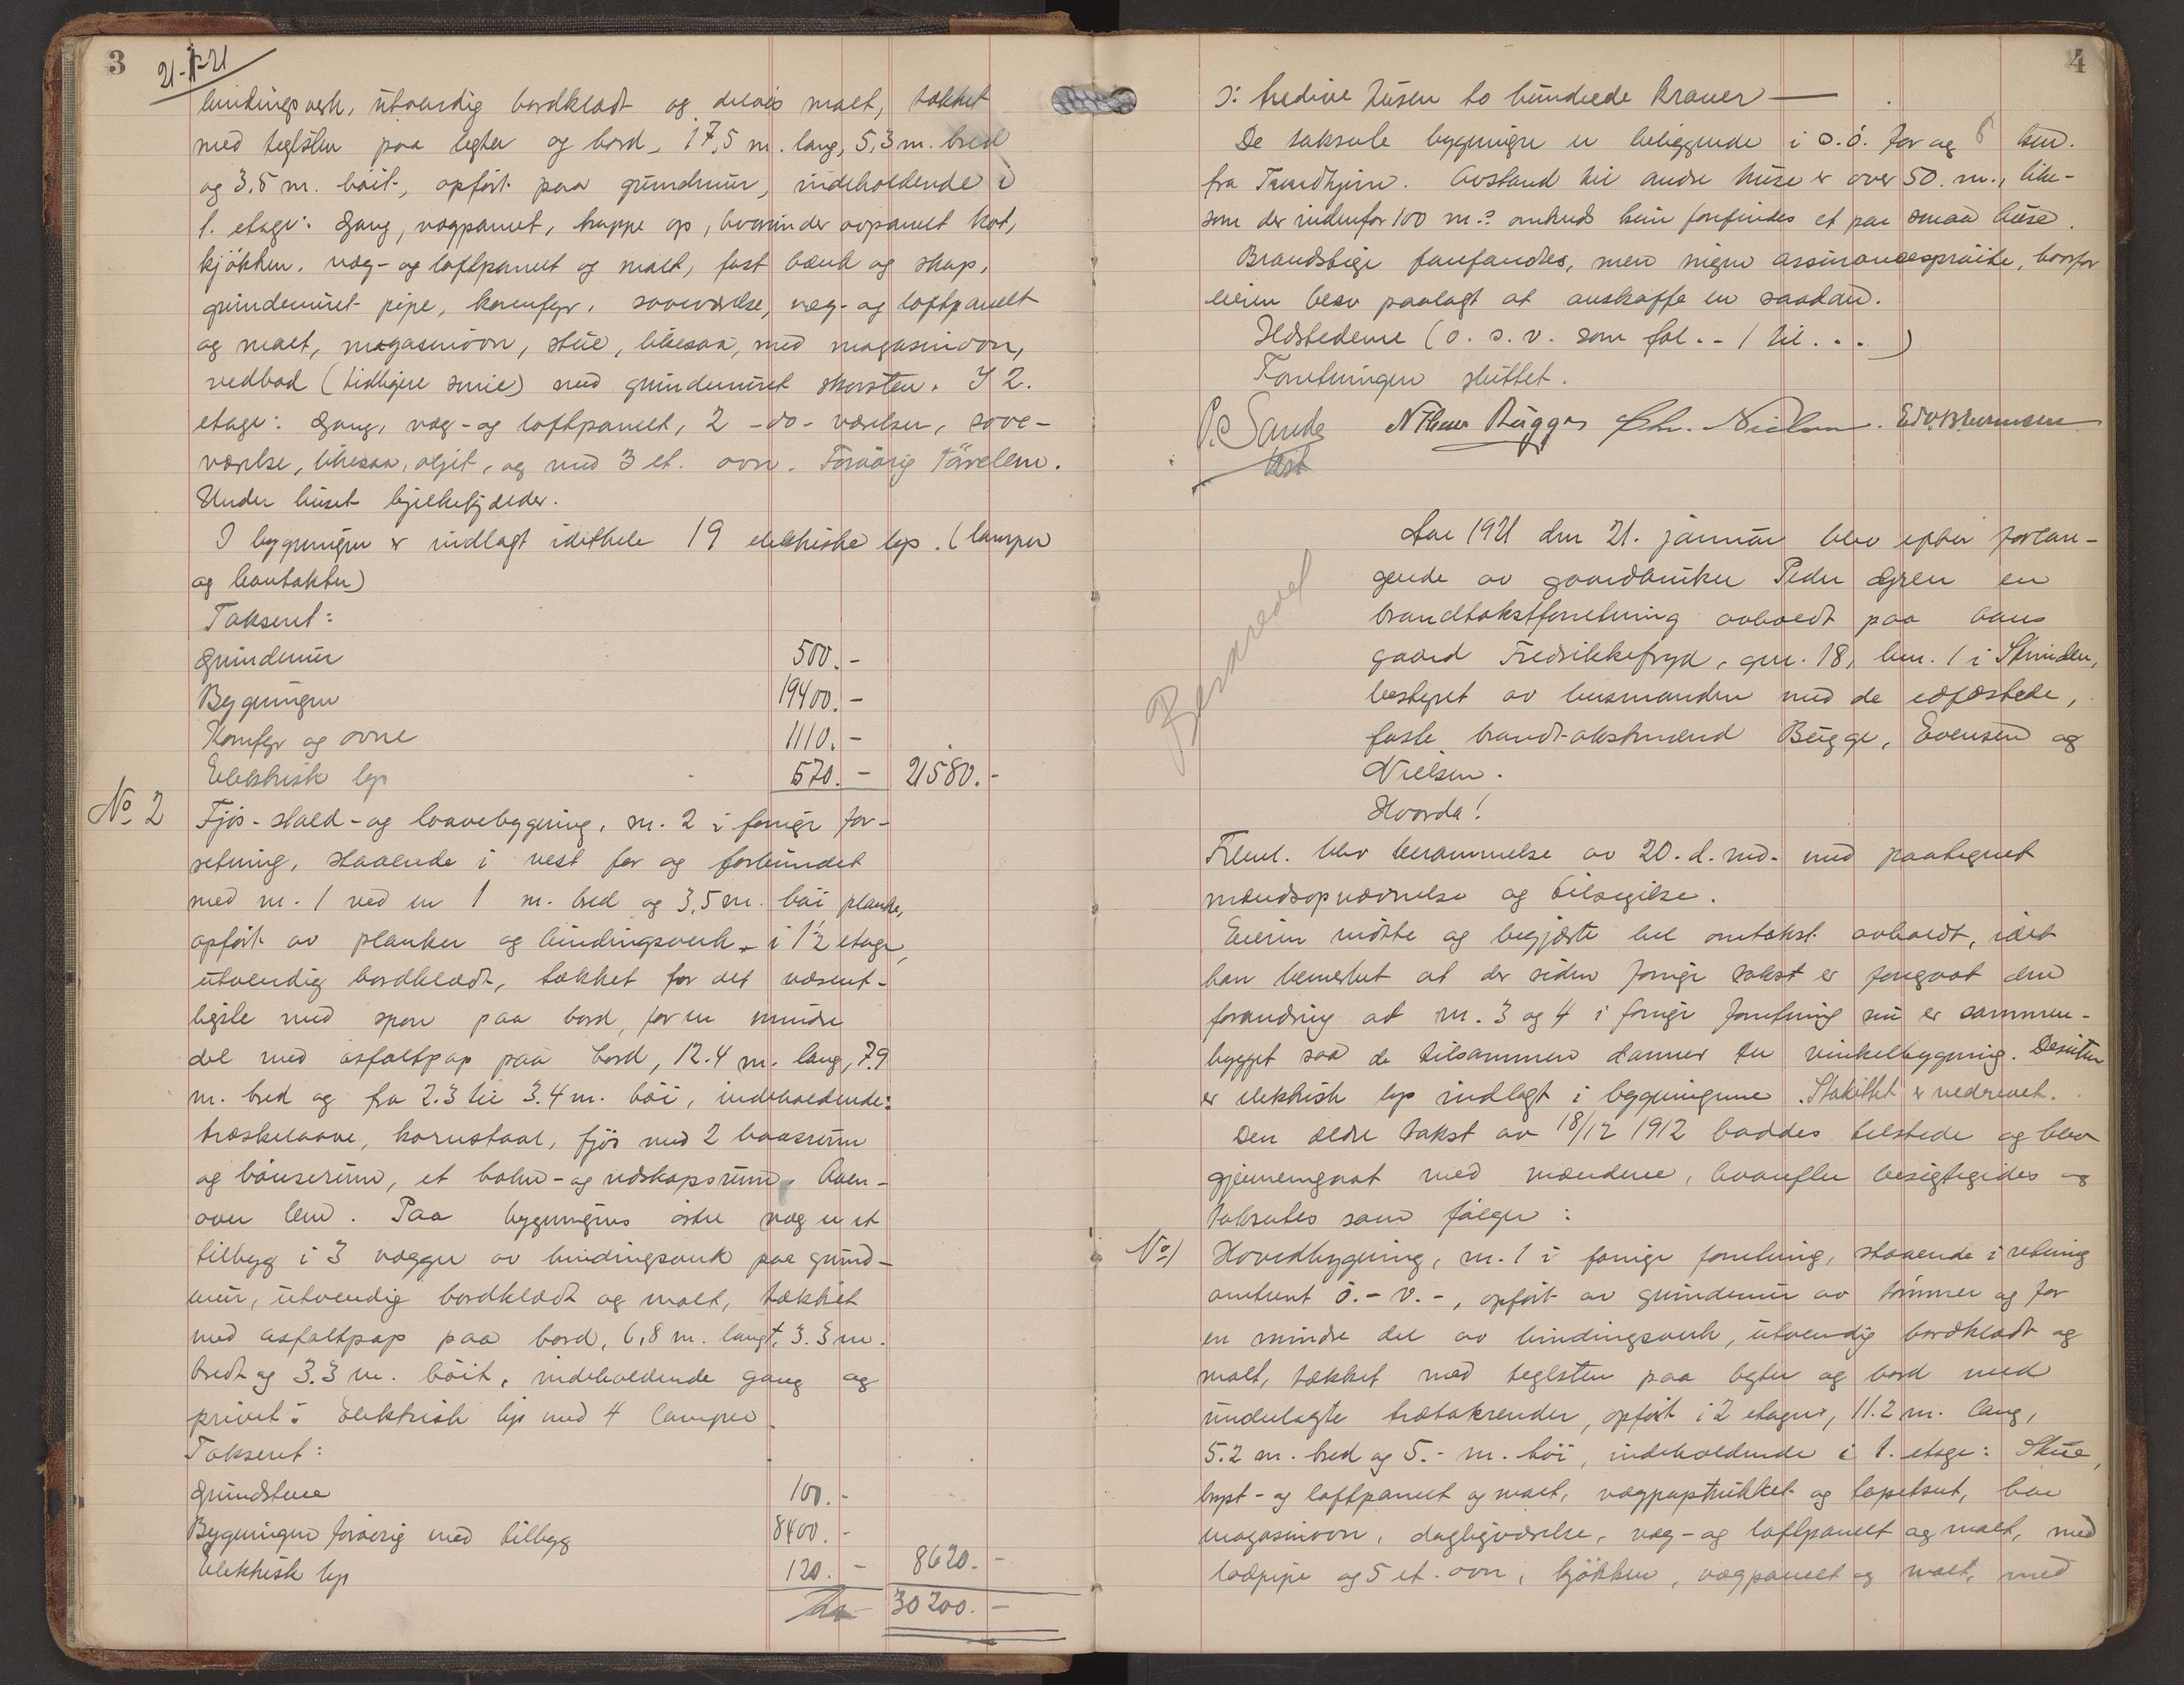 3
21-1-21
bindingsverk, utvendig bordklædt og delvis malt, tækket
med teglsten paa legter og bord, 17,5 m. lang, 5,3 m. bred
og 3,5 m. höit, opfört paa grundmur, indeholdende i
1. etage: Gang, vægpanelt, trappe op, hvorunder avpanelt kot,
kjökken, væg- og loftpanelt og malt, fast bænk og skap,
grundmuret pipe, komfyr, soveværelse, væg- og loftpanelt
og malt, magasinovn, stue, likesaa, med magasinovn,
vedbod (tidligere smie) med grundmuret skorsten. I 2.
etage: Gang, væg- og loftpanelt, 2 -do- værelser, sove-
værelse, likesaa, oljet, og med 3 et. ovn. Forövrig mörkeloft.
Under huset bjelkekjælder.
I bygningen er indlagt idethele 19 elektriske lys. (lamper
og kontakter)
Taksert:
Grundmur 500.-
Bygningen 19400.-
Komfyr og ovne 1110.-
Elektrisk lys 570.- 21580.-
No. 2 Fjös- stald- og laavebygning, nr. 2 i forrige for-
retning, staaende i vest for og forbundet
med nr. 1 ved en 1 m. bred og 3,5 m. höi planke,
opfört av planker og bindingsverk, i 1½ etage,
utvendig bordklædt, tækket for det væsent-
ligste med spon paa bord, for en mindre
del med asfaltpap paa bord, 12.4 m. lang, 7.9
m. bred og fra 2.3 til 3.4 m. höi, indeholdende:
træskelaave, kornstaal, fjös med 2 baasrum
og hönserum, et halm- og redskapsrum. Oven-
over lem. Paa bygningens östre væg er et
tilbyg i 3 vægger av bindingsverk paa grund-
mur, utvendig bordklædt og malt, tækket
med asfaltpap paa bord, 6,8 m. langt, 3.3 m.
bredt og 3.3 m. höit, indeholdende gang og
privet. Elektrisk lys med 4 lamper.
Taksert:
Grundstene 100.-
Bygningen forövrig med tilbyg 8400.-
Elektrisk lys 120.- 8620.-
Kr. 30200.-
4
ɔ: tredive tusen to hundrede kroner —
De takserte bygninger er beliggende i s.ö. for og 6 km.
fra Trondhjem. Avstand til andre huse er over 50 m., like-
som der indenfor 100 m.s omkreds kun forefindes et par smaa huse.
Brandstige forefandtes, men ingen assurancespröite, hvorfor
eieren blev paalagt at anskaffe en saadan.
Ildstederne (o. s. v. som fol. . . 1 til . . .)
Forretningen sluttet.
P. Sande N Bugge Chr. Nielsen. Edv. B. Evensen
Aar 1921 den 21. januar blev efter forlan-
gende av gaardbruker Peder Gren en
brandtakstforretning avholdt paa hans
gaard Fredrikkefryd, gnr. 18, bnr. 1 i Strinden,
bestyret av lensmanden med de edfæstede,
faste brandtakstmænd Bugge, Evensen og
Nielsen.
Hvorda!
Beskrevet
Freml. blev berammelse av 20. d. md. med paategnet
mændsopnævnelse og tilsigelse.
Eieren mötte og begjærte hel omtakst avholdt, idet
han bemerket at der siden forrige takst er foregaat den
forandring at nr. 3 og 4 i forrige forretning nu er sammen-
bygget saa de tilsammen danner en vinkelbygning. Desuten
er elektrisk lys indlagt i bygningerne. Stakittet er nedrevet.
Den ældre takst av 18/12 1912 haddes tilstede og blev
gjennemgaat med mændene, hvorefter besigtigedes og
taksertes som fölger:
No. 1 Hovedbygning, nr. 1 i forrige forretning, staaende i retning
omtrent ö.- v.-, opfört av grundmur av tömmer og for
en mindre del av bindingsverk, utvendig bordklædt og
malt, tækket med teglsten paa legter og bord med
underlagte trætakrender, opfört i 2 etager, 11.2 m. lang,
5.2 m. bred og 5.- m. höi, indeholdende i 1. etage: Stue,
bryst- og loftpanelt og malt, vægpapstrukket og tapetsert, har
magasinovn, dagligværelse, væg- og loftpanelt og malt, med
lodpipe og 5 et. ovn, kjökken, vægpanelt og malt, med